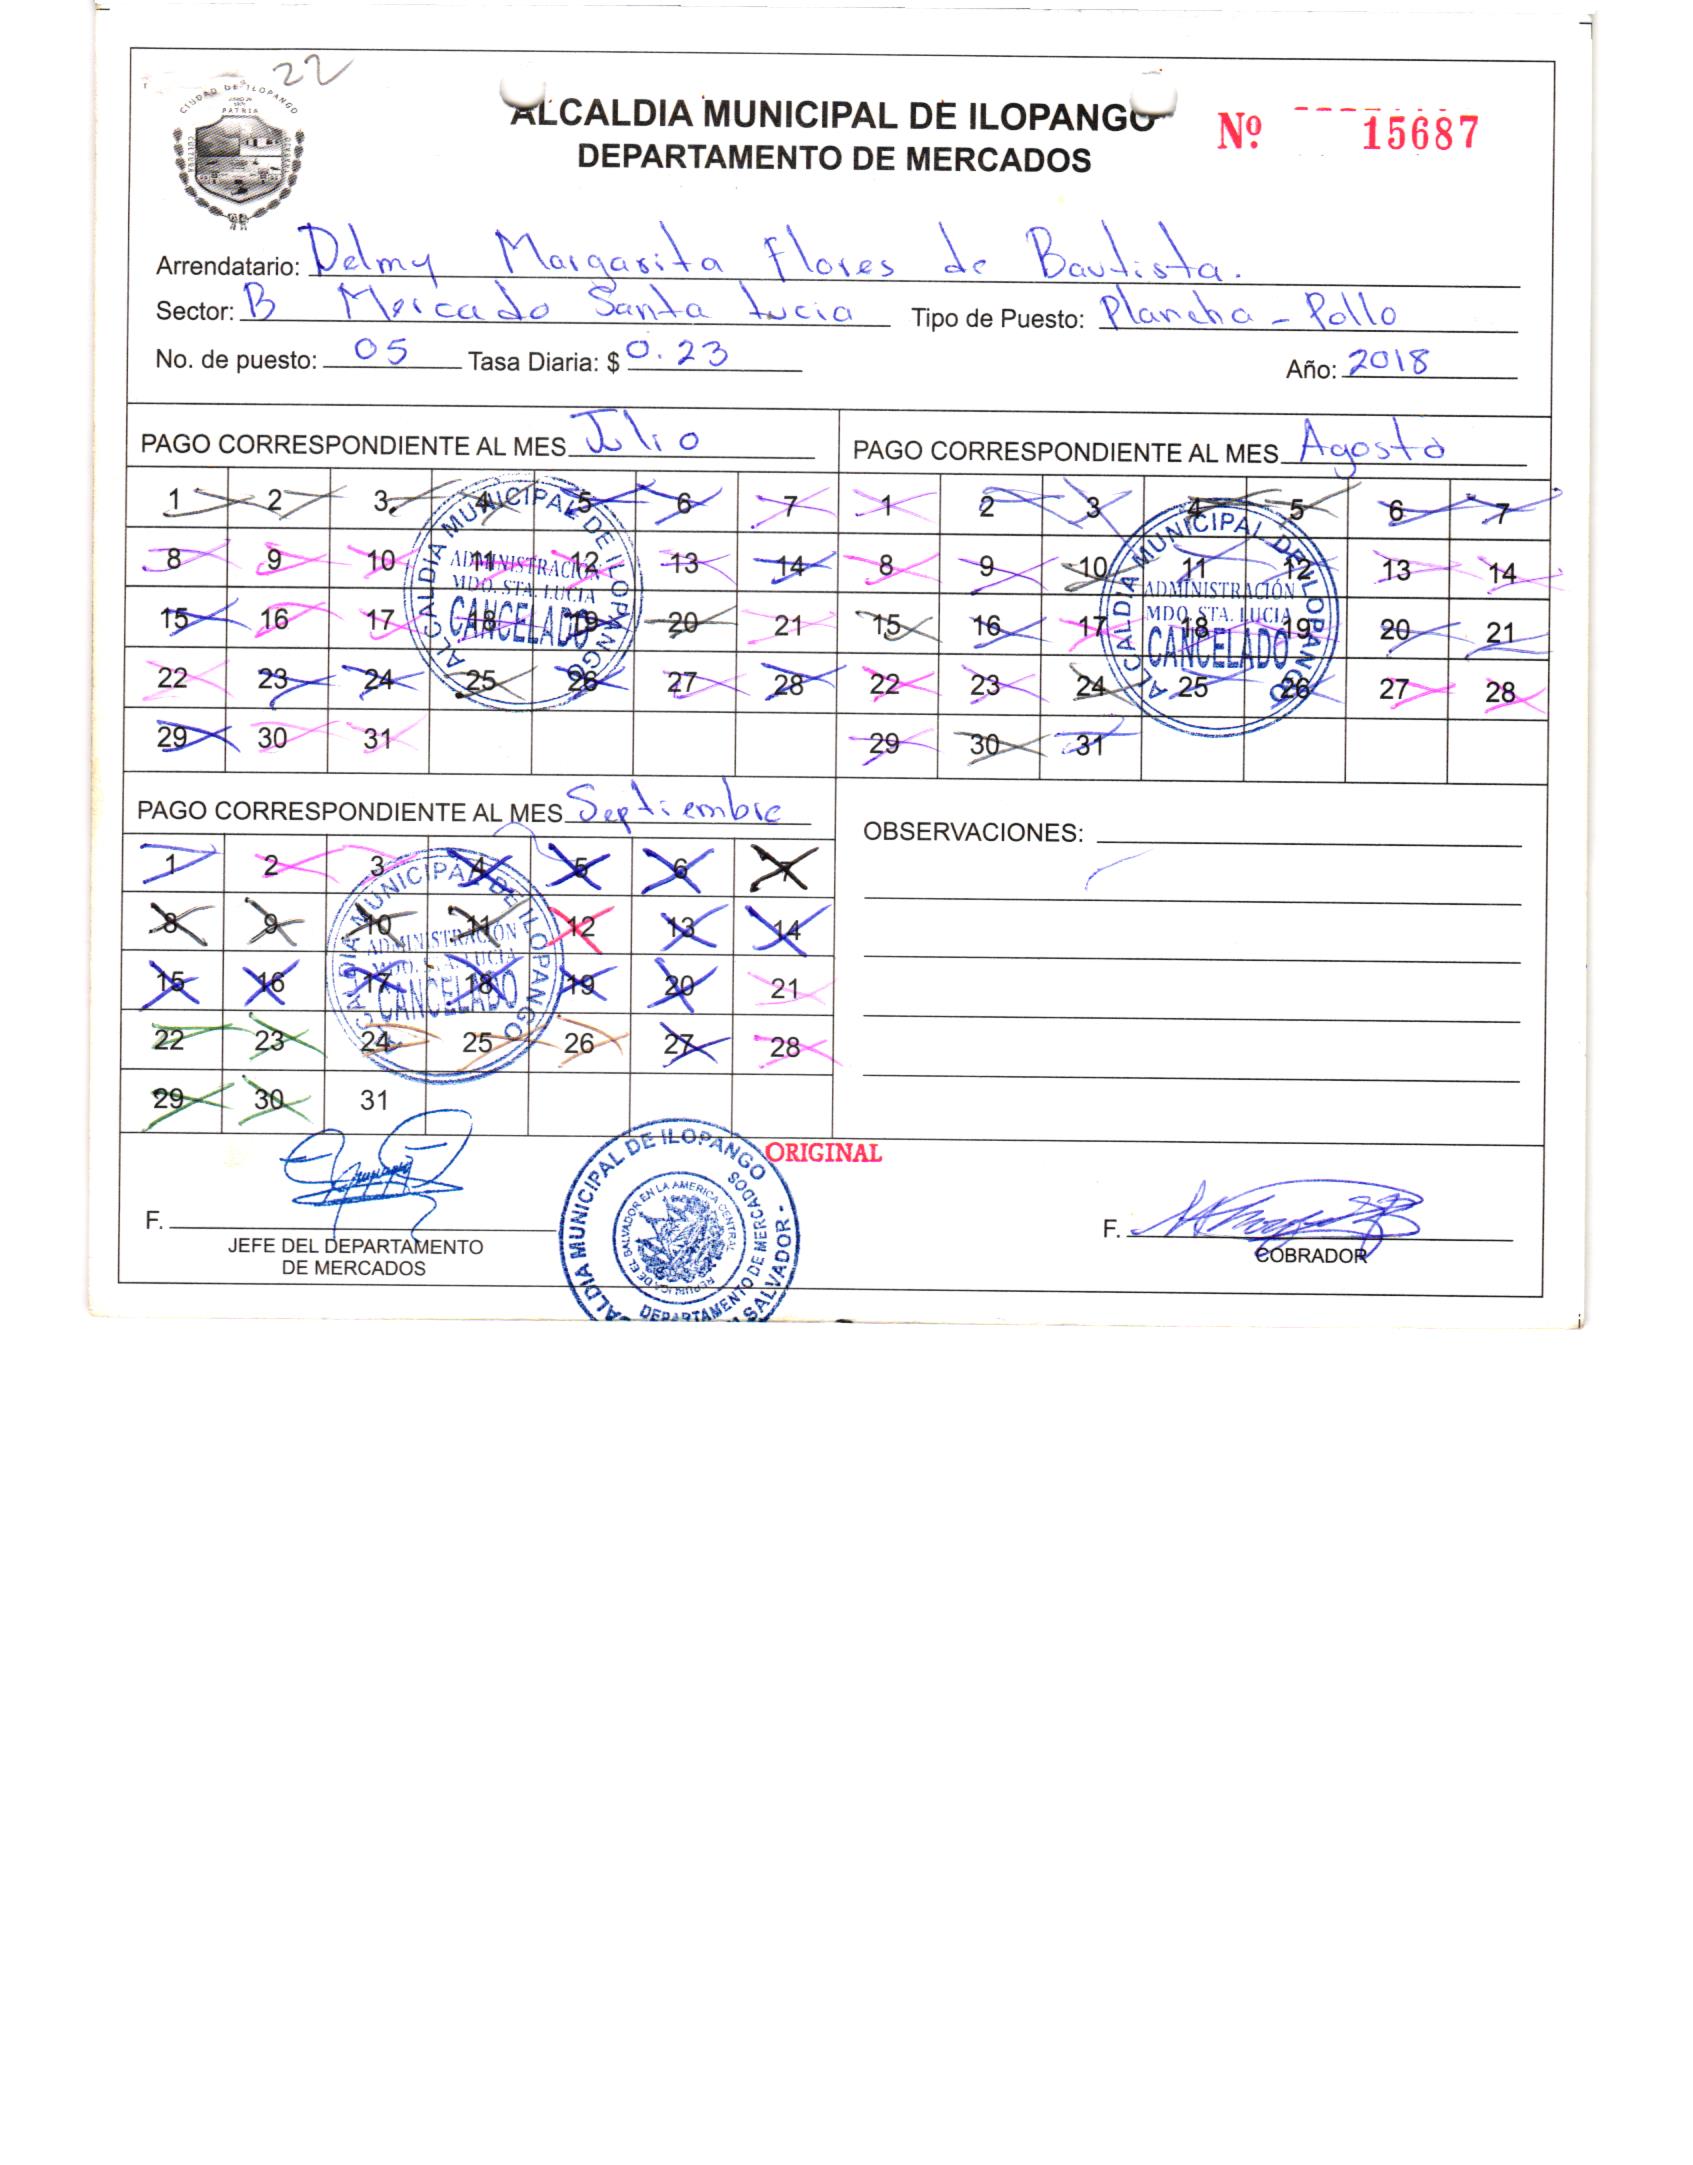 22
CIUDAD DE ILOPANGO
PATRIA
CULTURA
ALCALDIA MUNICIPAL DE ILOPANGO
DEPARTAMENTO DE MERCADOS
Nº 15687
Arrendatario: Delmy Margarita Flores de Bautista.
Sector: B Mercado Santa Lucia Tipo de Puesto: Plancha - Pollo
No. de puesto: 05 Tasa Diaria: $ 0.23 Año: 2018
PAGO CORRESPONDIENTE AL MES Julio
1 2 3 4 5 6 7
8 9 10 11 12 13 14
15 16 17 18 19 20 21
22 23 24 25 26 27 28
29 30 31
ALCALDIA MUNICIPAL DE ILOPANGO
ADMINISTRACIÓN
MDO. STA. LUCIA
CANCELADO
PAGO CORRESPONDIENTE AL MES Agosto
1 2 3 4 5 6 7
8 9 10 11 12 13 14
15 16 17 18 19 20 21
22 23 24 25 26 27 28
29 30 31
ALCALDIA MUNICIPAL DE ILOPANGO
ADMINISTRACIÓN
MDO. STA. LUCIA
CANCELADO
PAGO CORRESPONDIENTE AL MES Septiembre
1 2 3 4 5 6 7
8 9 10 11 12 13 14
15 16 17 18 19 20 21
22 23 24 25 26 27 28
29 30 31
ALCALDIA MUNICIPAL DE ILOPANGO
ADMINISTRACIÓN
MDO. STA. LUCIA
CANCELADO
OBSERVACIONES:
ORIGINAL
F.
JEFE DEL DEPARTAMENTO
DE MERCADOS
ALCALDIA MUNICIPAL DE ILOPANGO
DEPARTAMENTO DE MERCADOS
SALVADOR -
REPUBLICA DE EL SALVADOR EN LA AMERICA CENTRAL
F.
COBRADOR